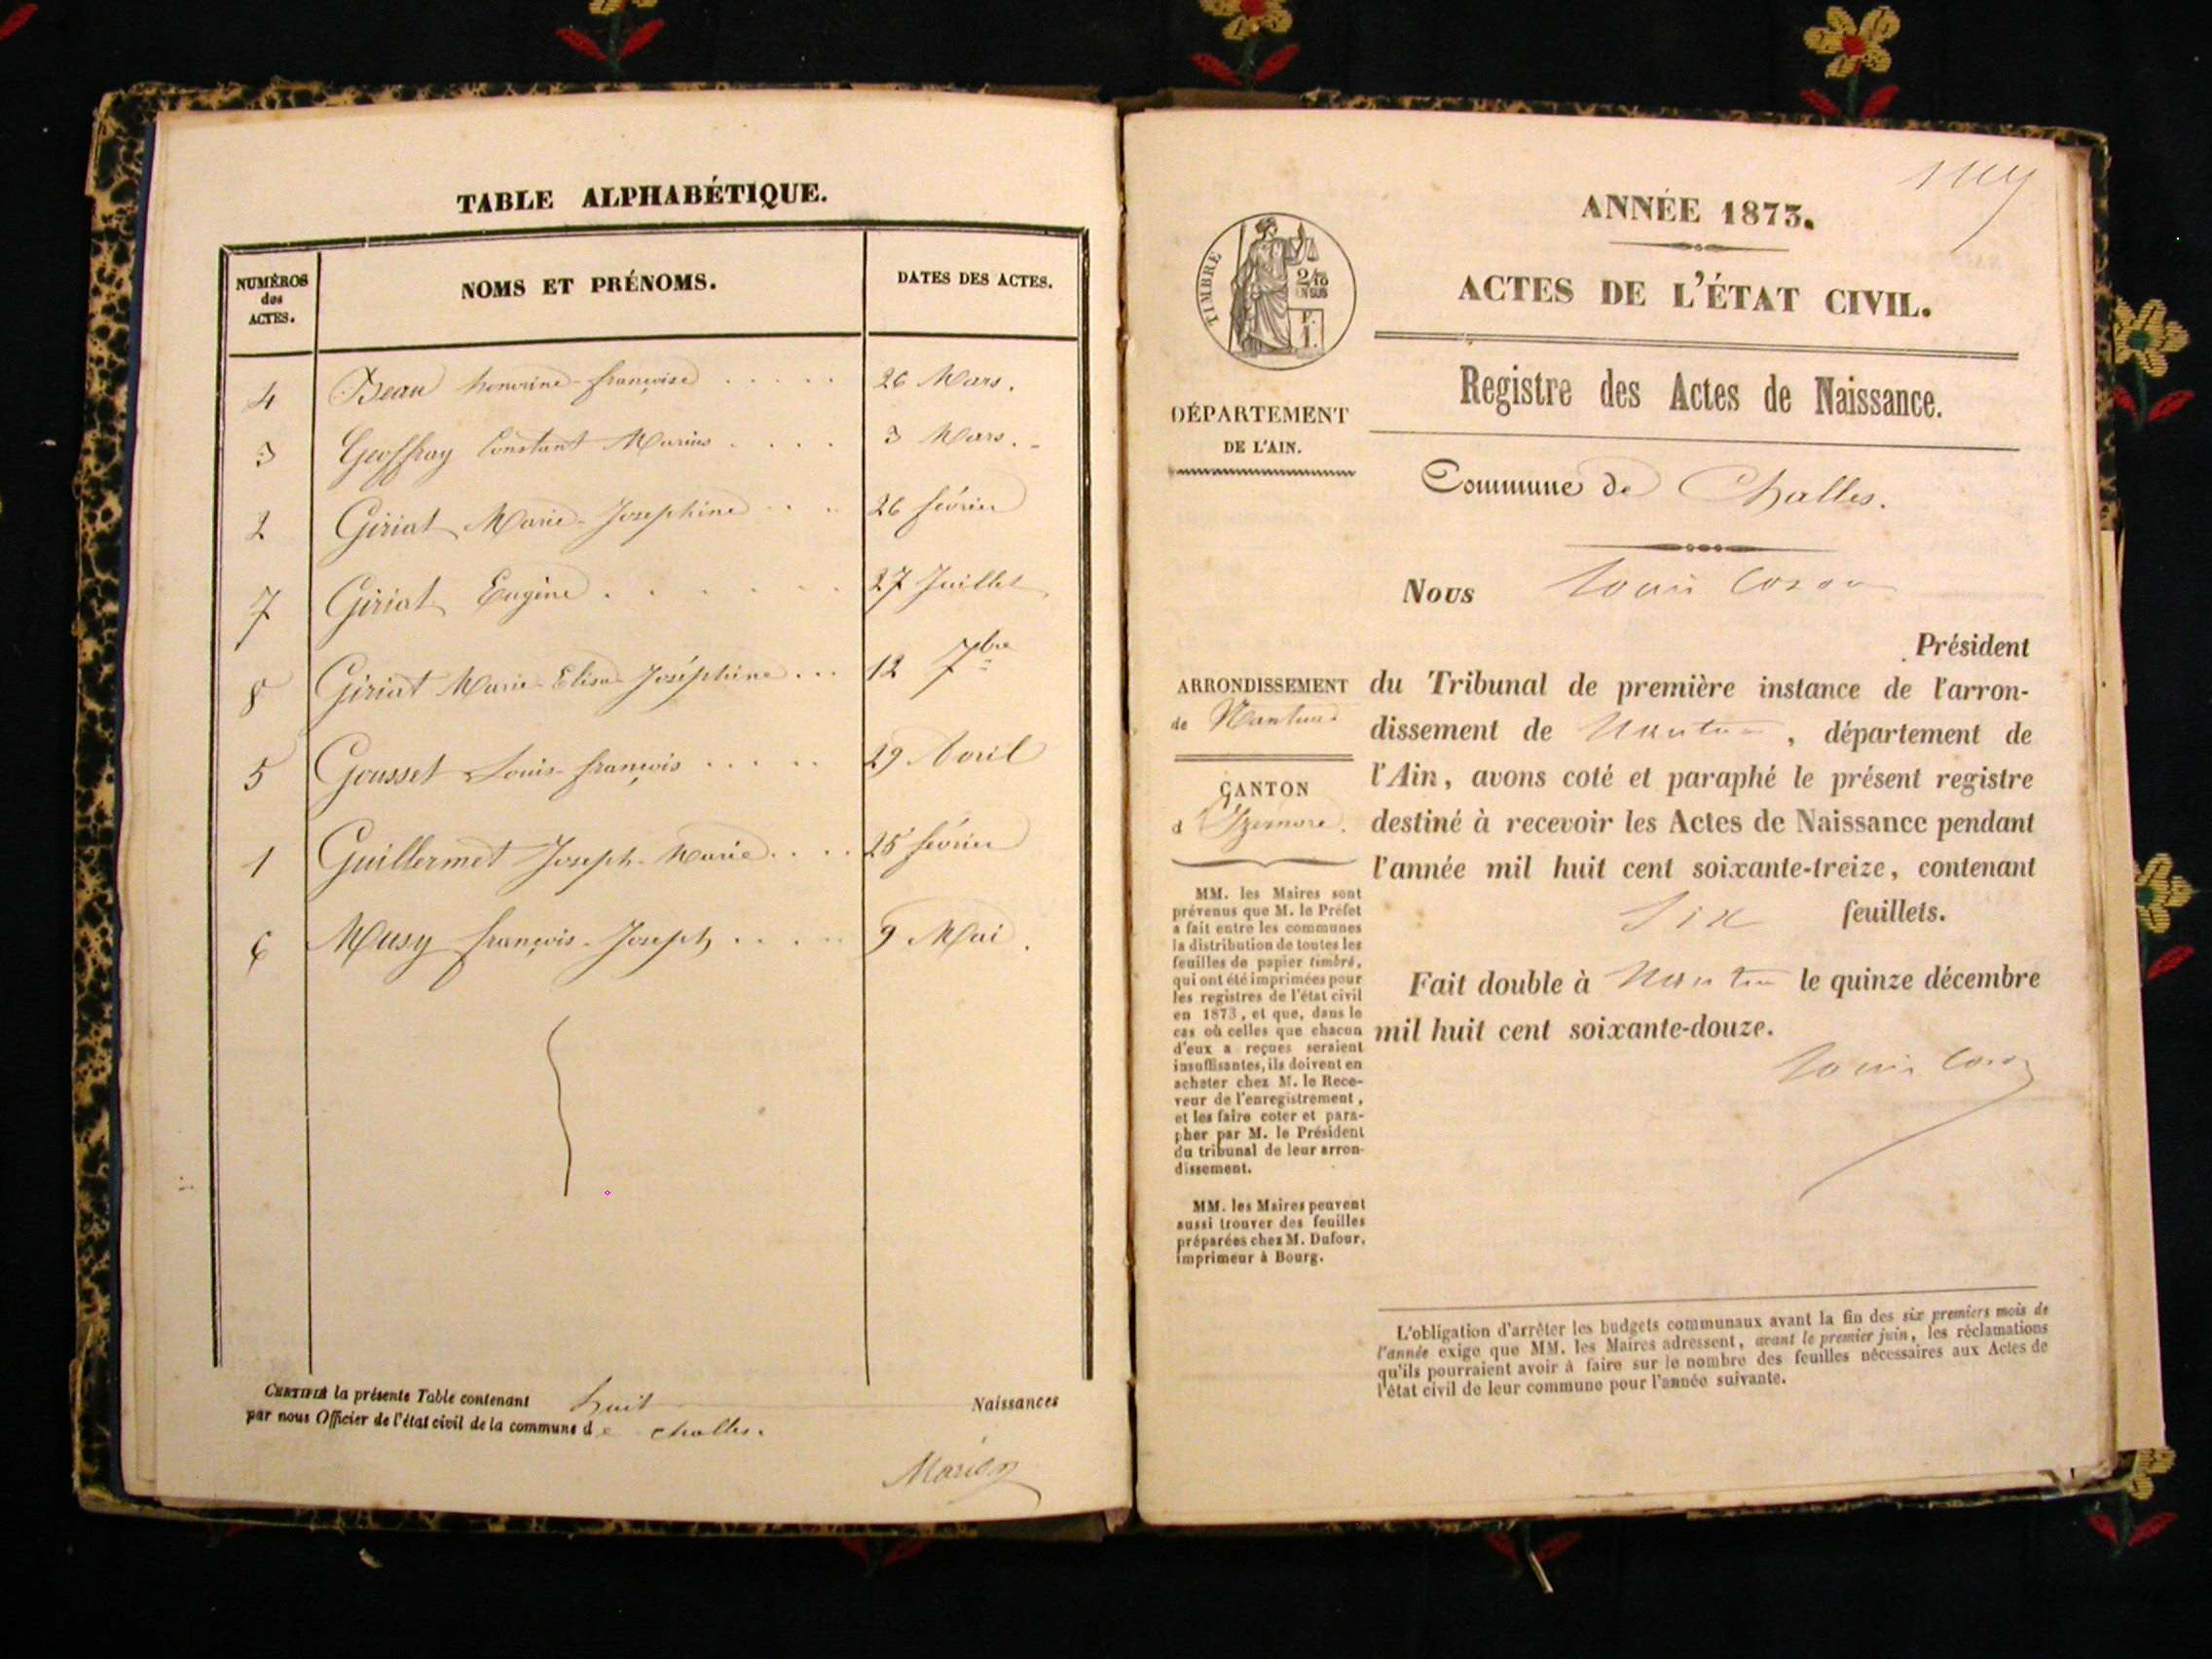 TABLE ALPHABÉTIQUE.
NUMÉROS des ACTES.
NOMS ET PRÉNOMS.
DATES DES ACTES.
4 Beau honorine-françoise 26 Mars.
3 Geoffray Constant Marius 3 Mars.
2 Giriat Marie-Josephine 26 février
7 Giriat Eugène 27 Juillet
8 Giriat Marie-Elisa-Joséphine 12 7bre
5 Gousset Louis-françois 29 Avril
1 Guillermet Joseph-Marie 25 février
6 Musy françois-Joseph 9 Mai.
CERTIFIÉ la présente Table contenant huit Naissances
par nous Officier de l'état civil de la commune de Challes.
ANNÉE 1873.
ACTES DE L'ÉTAT CIVIL.
TIMBRE
2/10
EN SUS
Registre des Actes de Naissance.
DÉPARTEMENT
DE L'AIN.
Commune de Challes.
Nous
Président
ARRONDISSEMENT
de Nantua
CANTON
d'Izernore.
du Tribunal de première instance de l'arron-
dissement de Nantua, département de
l'Ain, avons coté et paraphé le présent registre
destiné à recevoir les Actes de Naissance pendant
l'année mil huit cent soixante-treize, contenant
Six feuillets.
Fait double à Nantua le quinze décembre
mil huit cent soixante-douze.
MM. les Maires sont
prévenus que M. le Préfet
a fait entre les communes
la distribution de toutes les
feuilles de papier timbré,
qui ont été imprimées pour
les registres de l'état civil
en 1873, et que, dans le
cas où celles que chacun
d'eux a reçues seraient
insuffisantes, ils doivent en
acheter chez M. le Rece-
veur de l'enregistrement,
et les faire coter et para-
pher par M. le Président
du tribunal de leur arron-
dissement.
MM. les Maires peuvent
aussi trouver des feuilles
préparées chez M. Dufour,
imprimeur à Bourg.
L'obligation d'arrêter les budgets communaux avant la fin des six premiers mois de
l'année exige que MM. les Maires adressent, avant le premier juin, les réclamations
qu'ils pourraient avoir à faire sur le nombre des feuilles nécessaires aux Actes de
l'état civil de leur commune pour l'année suivante.